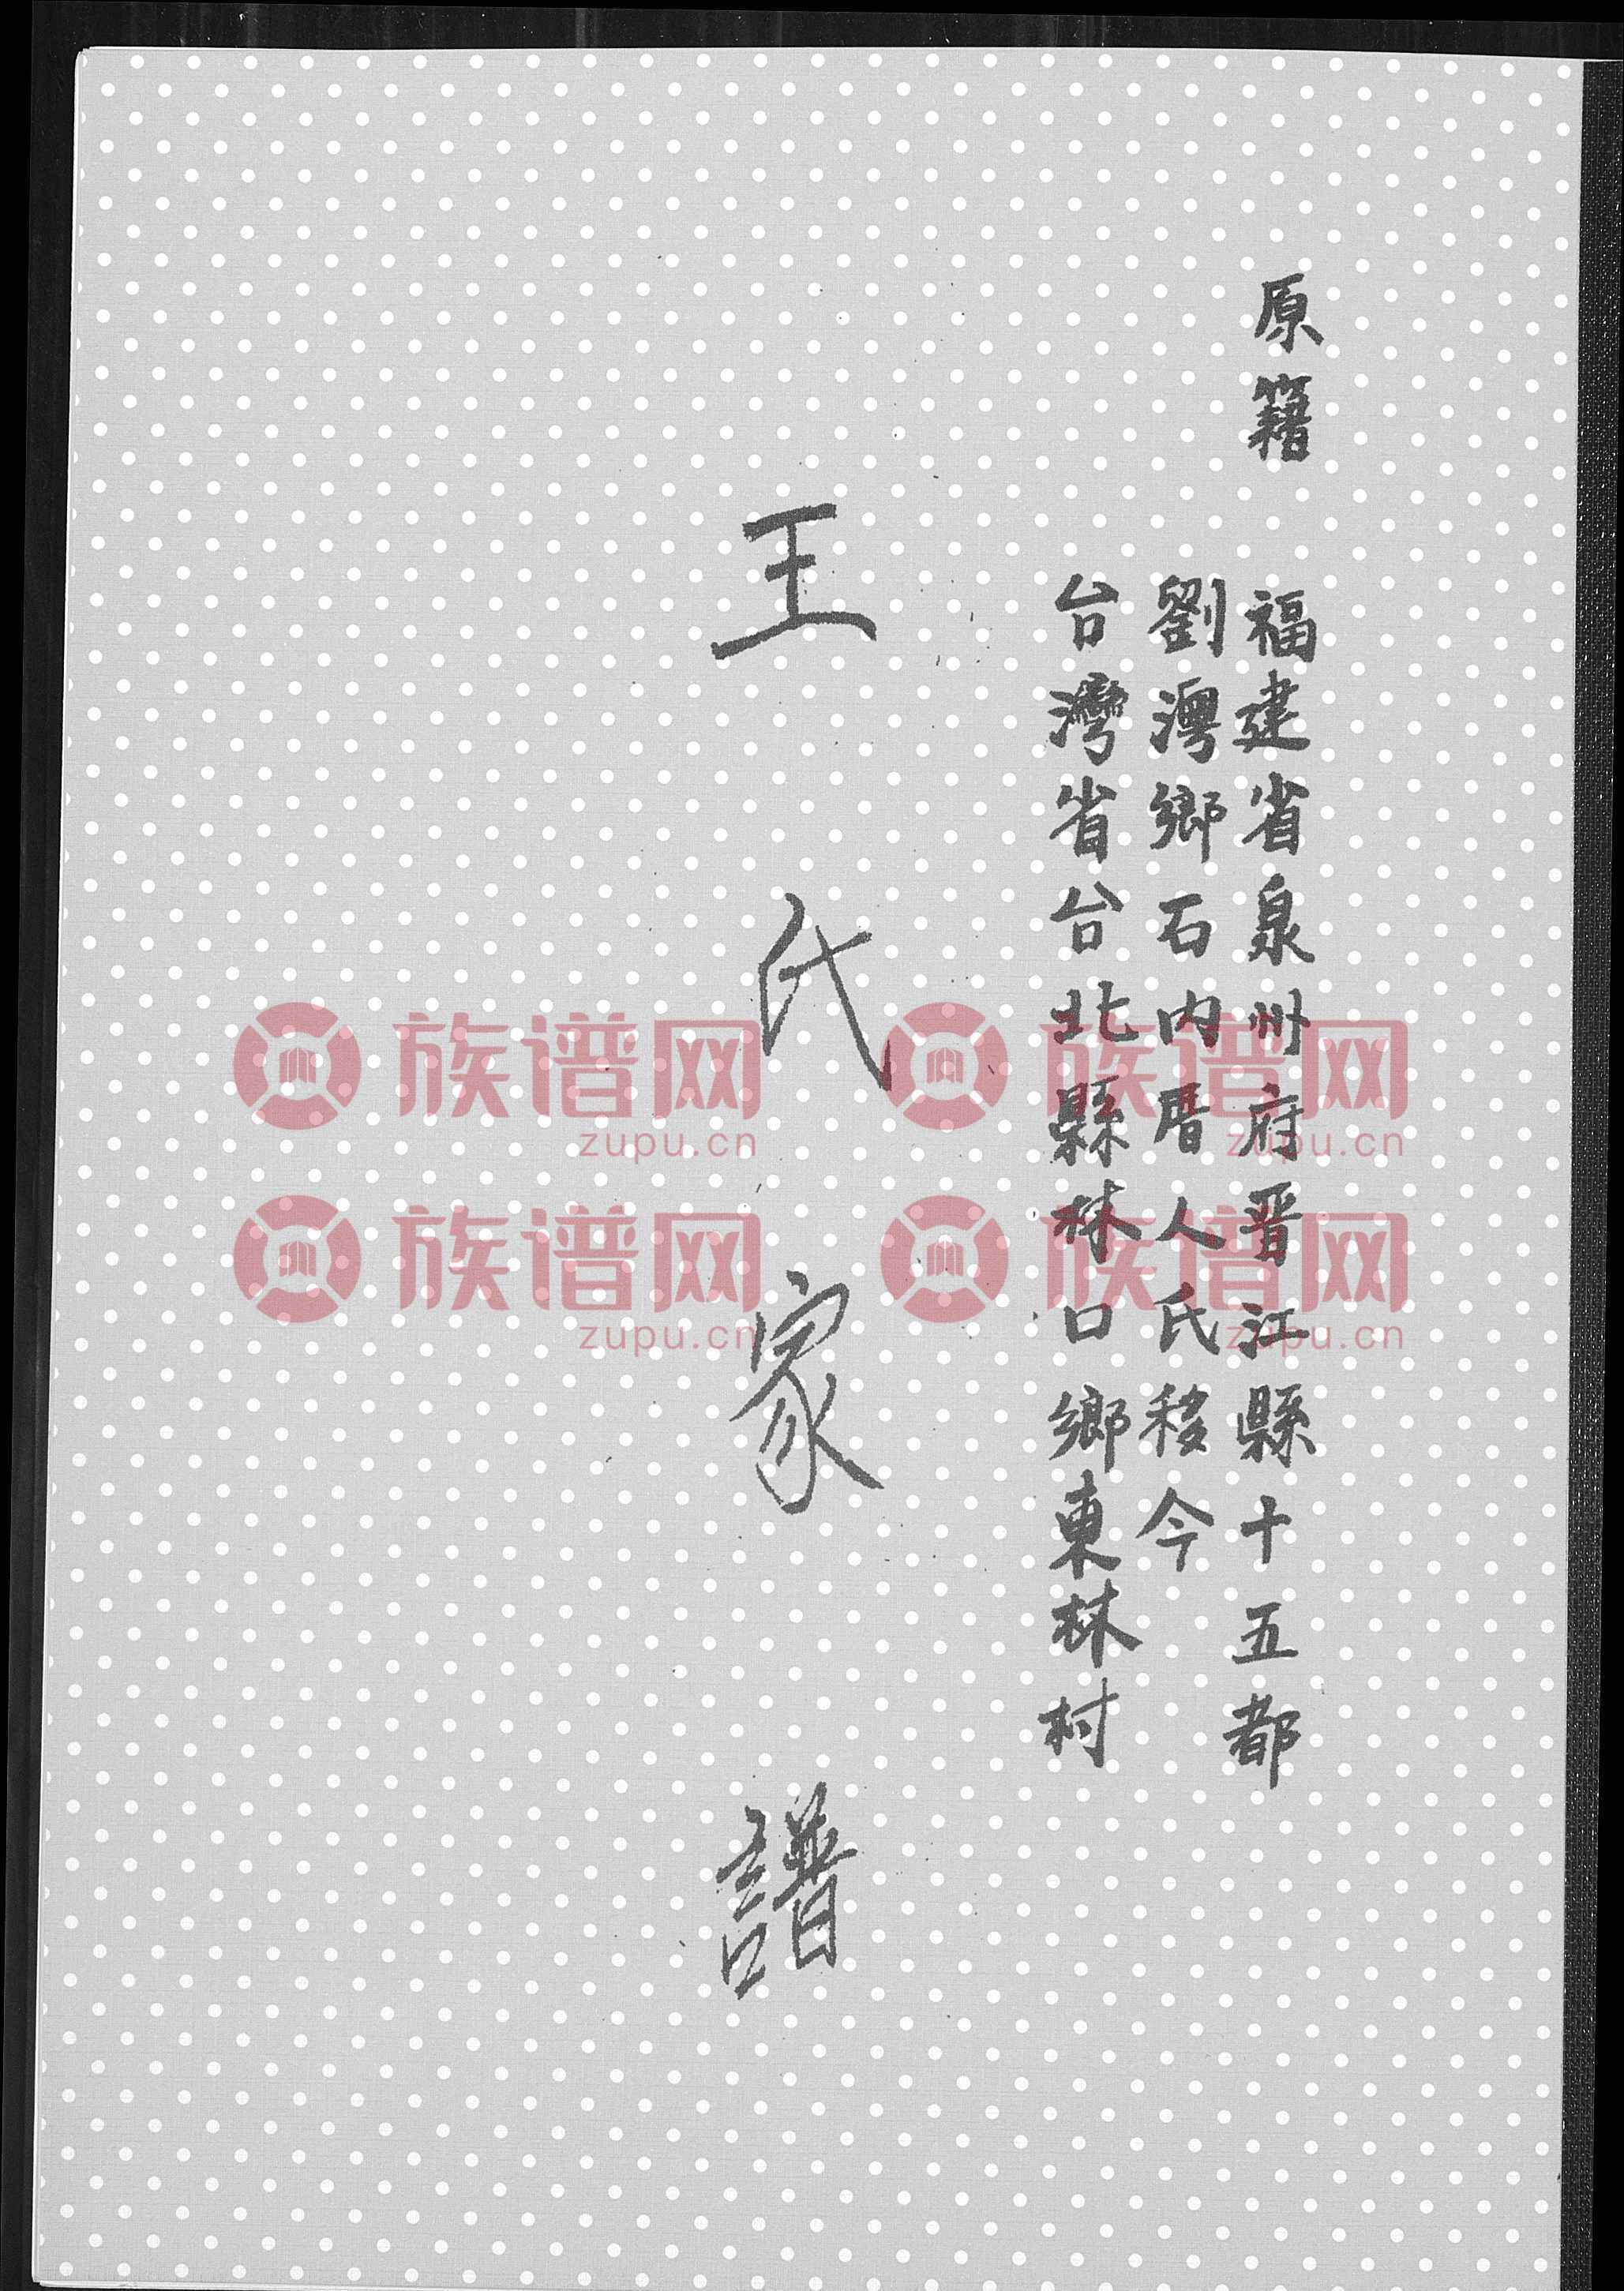 原籍
福建省泉州府晋江縣十五都
劉澳鄉石内厝人氏移今
台灣省台北縣林口鄉東林村
王氏家譜
族谱网 族谱网
zupu.cn zupu.cn
族谱网 族谱网
zupu.cn zupu.cn